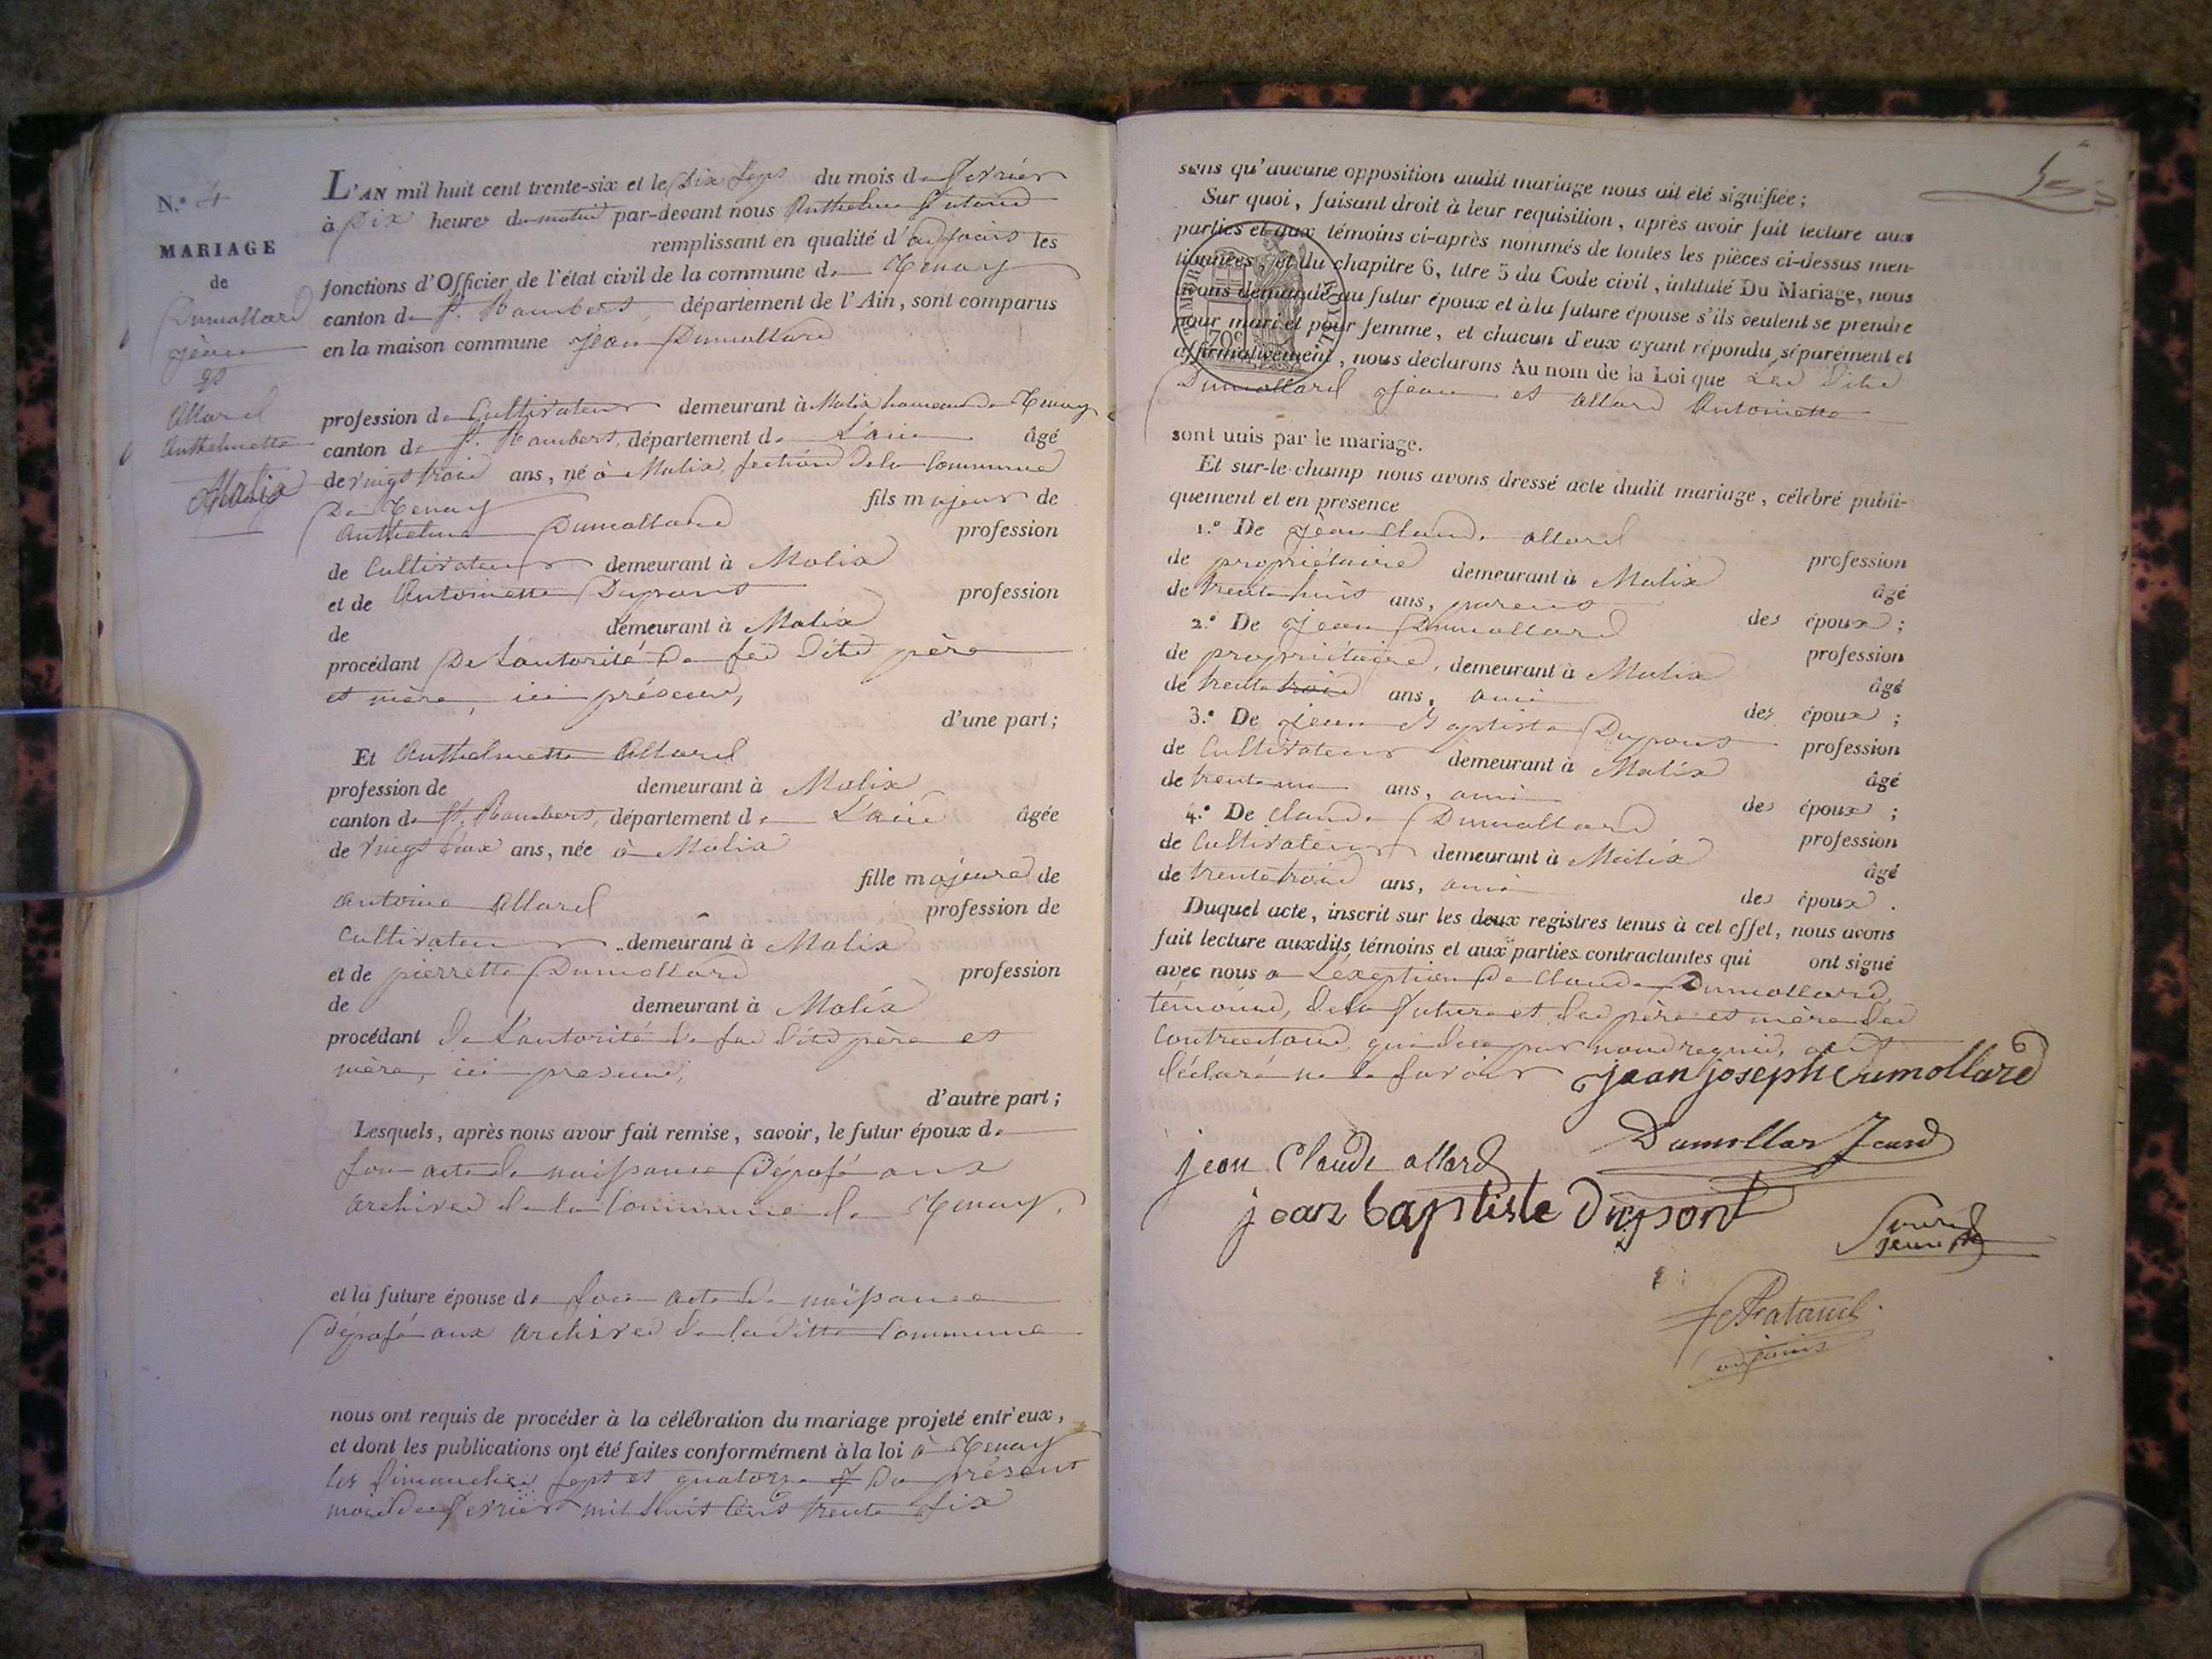 N.º 4
MARIAGE
de
Dumollard
Jean
et
Allard
Anthelmette
Malix
L'AN mil huit cent trente-six et le dix sept du mois de fevrier
à dix heures du matin par-devant nous Anthelme
remplissant en qualité d'adjoint les
fonctions d'Officier de l'état civil de la commune de Tenay
canton de St. Rambert, département de l'Ain, sont comparus
en la maison commune Jean Dumollard
profession de Cultivateur demeurant à Malix hameau de Tenay
canton de St. Rambert, département de L'ain âgé
de vingt trois ans, né à Malix, section de la Commune
De Tenay fils majeur de
Anthelme Dumollard profession
de Cultivateur demeurant à Malix
et de Antoinette Dupont profession
de demeurant à Malix
procédant De L'autorité de ses dits père
et mère, ici présens,
d'une part;
Et Anthelmette Allard
profession de demeurant à Malix
canton de St. Rambert, département de L'ain âgée
de vingt deux ans, née à Malix
fille majeure de
Antoine Allard profession de
Cultivateur demeurant à Malix
et de pierrette Dumollard profession
de demeurant à Malix
procédant de L'autorité de ses dits père et
mère, ici presens,
d'autre part;
Lesquels, après nous avoir fait remise, savoir, le futur époux de
son acte de naissance Déposé aux
archives de la Commune de Tenay.
et la future épouse de son acte de naissance
Déposé aux archives de la ditte Commune
nous ont requis de procéder à la célébration du mariage projeté entr'eux,
et dont les publications ont été faites conformément à la loi à Tenay
les dimanches sept et quatorze du présent
mois de fevrier mil huit cent trente six
sans qu'aucune opposition audit mariage nous ait été signifiée;
Sur quoi, faisant droit à leur requisition, après avoir fait lecture aux
parties et aux témoins ci-après nommés de toutes les pièces ci-dessus men-
tionnées, et du chapitre 6, titre 5 du Code civil, intitulé Du Mariage, nous
avons demandé au futur époux et à la future épouse s'ils veulent se prendre
pour mari et pour femme, et chacun d'eux ayant répondu séparément et
affirmativement, nous déclarons Au nom de la Loi que Les dits
Dumollard Jean et Allard Antoinette
sont unis par le mariage.
Et sur-le-champ nous avons dressé acte dudit mariage, célébré publi-
quement et en presence
1.º De Jean Claude allard profession
de propriétaire demeurant à Malix âgé
de trente huit ans, parent des époux;
2.º De Jean Dumollard profession
de propriétaire, demeurant à Malix âgé
de trente trois ans, ami des époux;
3.º De Jean Baptiste Dupont profession
de Cultivateur demeurant à Malix âgé
de trente un ans, ami des époux;
4.º De Claude Dumollard profession
de Cultivateur demeurant à Malix âgé
de trente trois ans, ami des époux.
Duquel acte, inscrit sur les deux registres tenus à cet effet, nous avons
fait lecture auxdits témoins et aux parties contractantes qui ont signé
avec nous a L'exeption De Claude Dumollard,
témoins, de la future et des père et mère des
Contractans, qui de ce par nous requis, ont
déclaré ne le savoir
jean joseph Dumollard
Dumollar Jean
jean Claude allard
jean baptiste Dupont
adjoint
70c